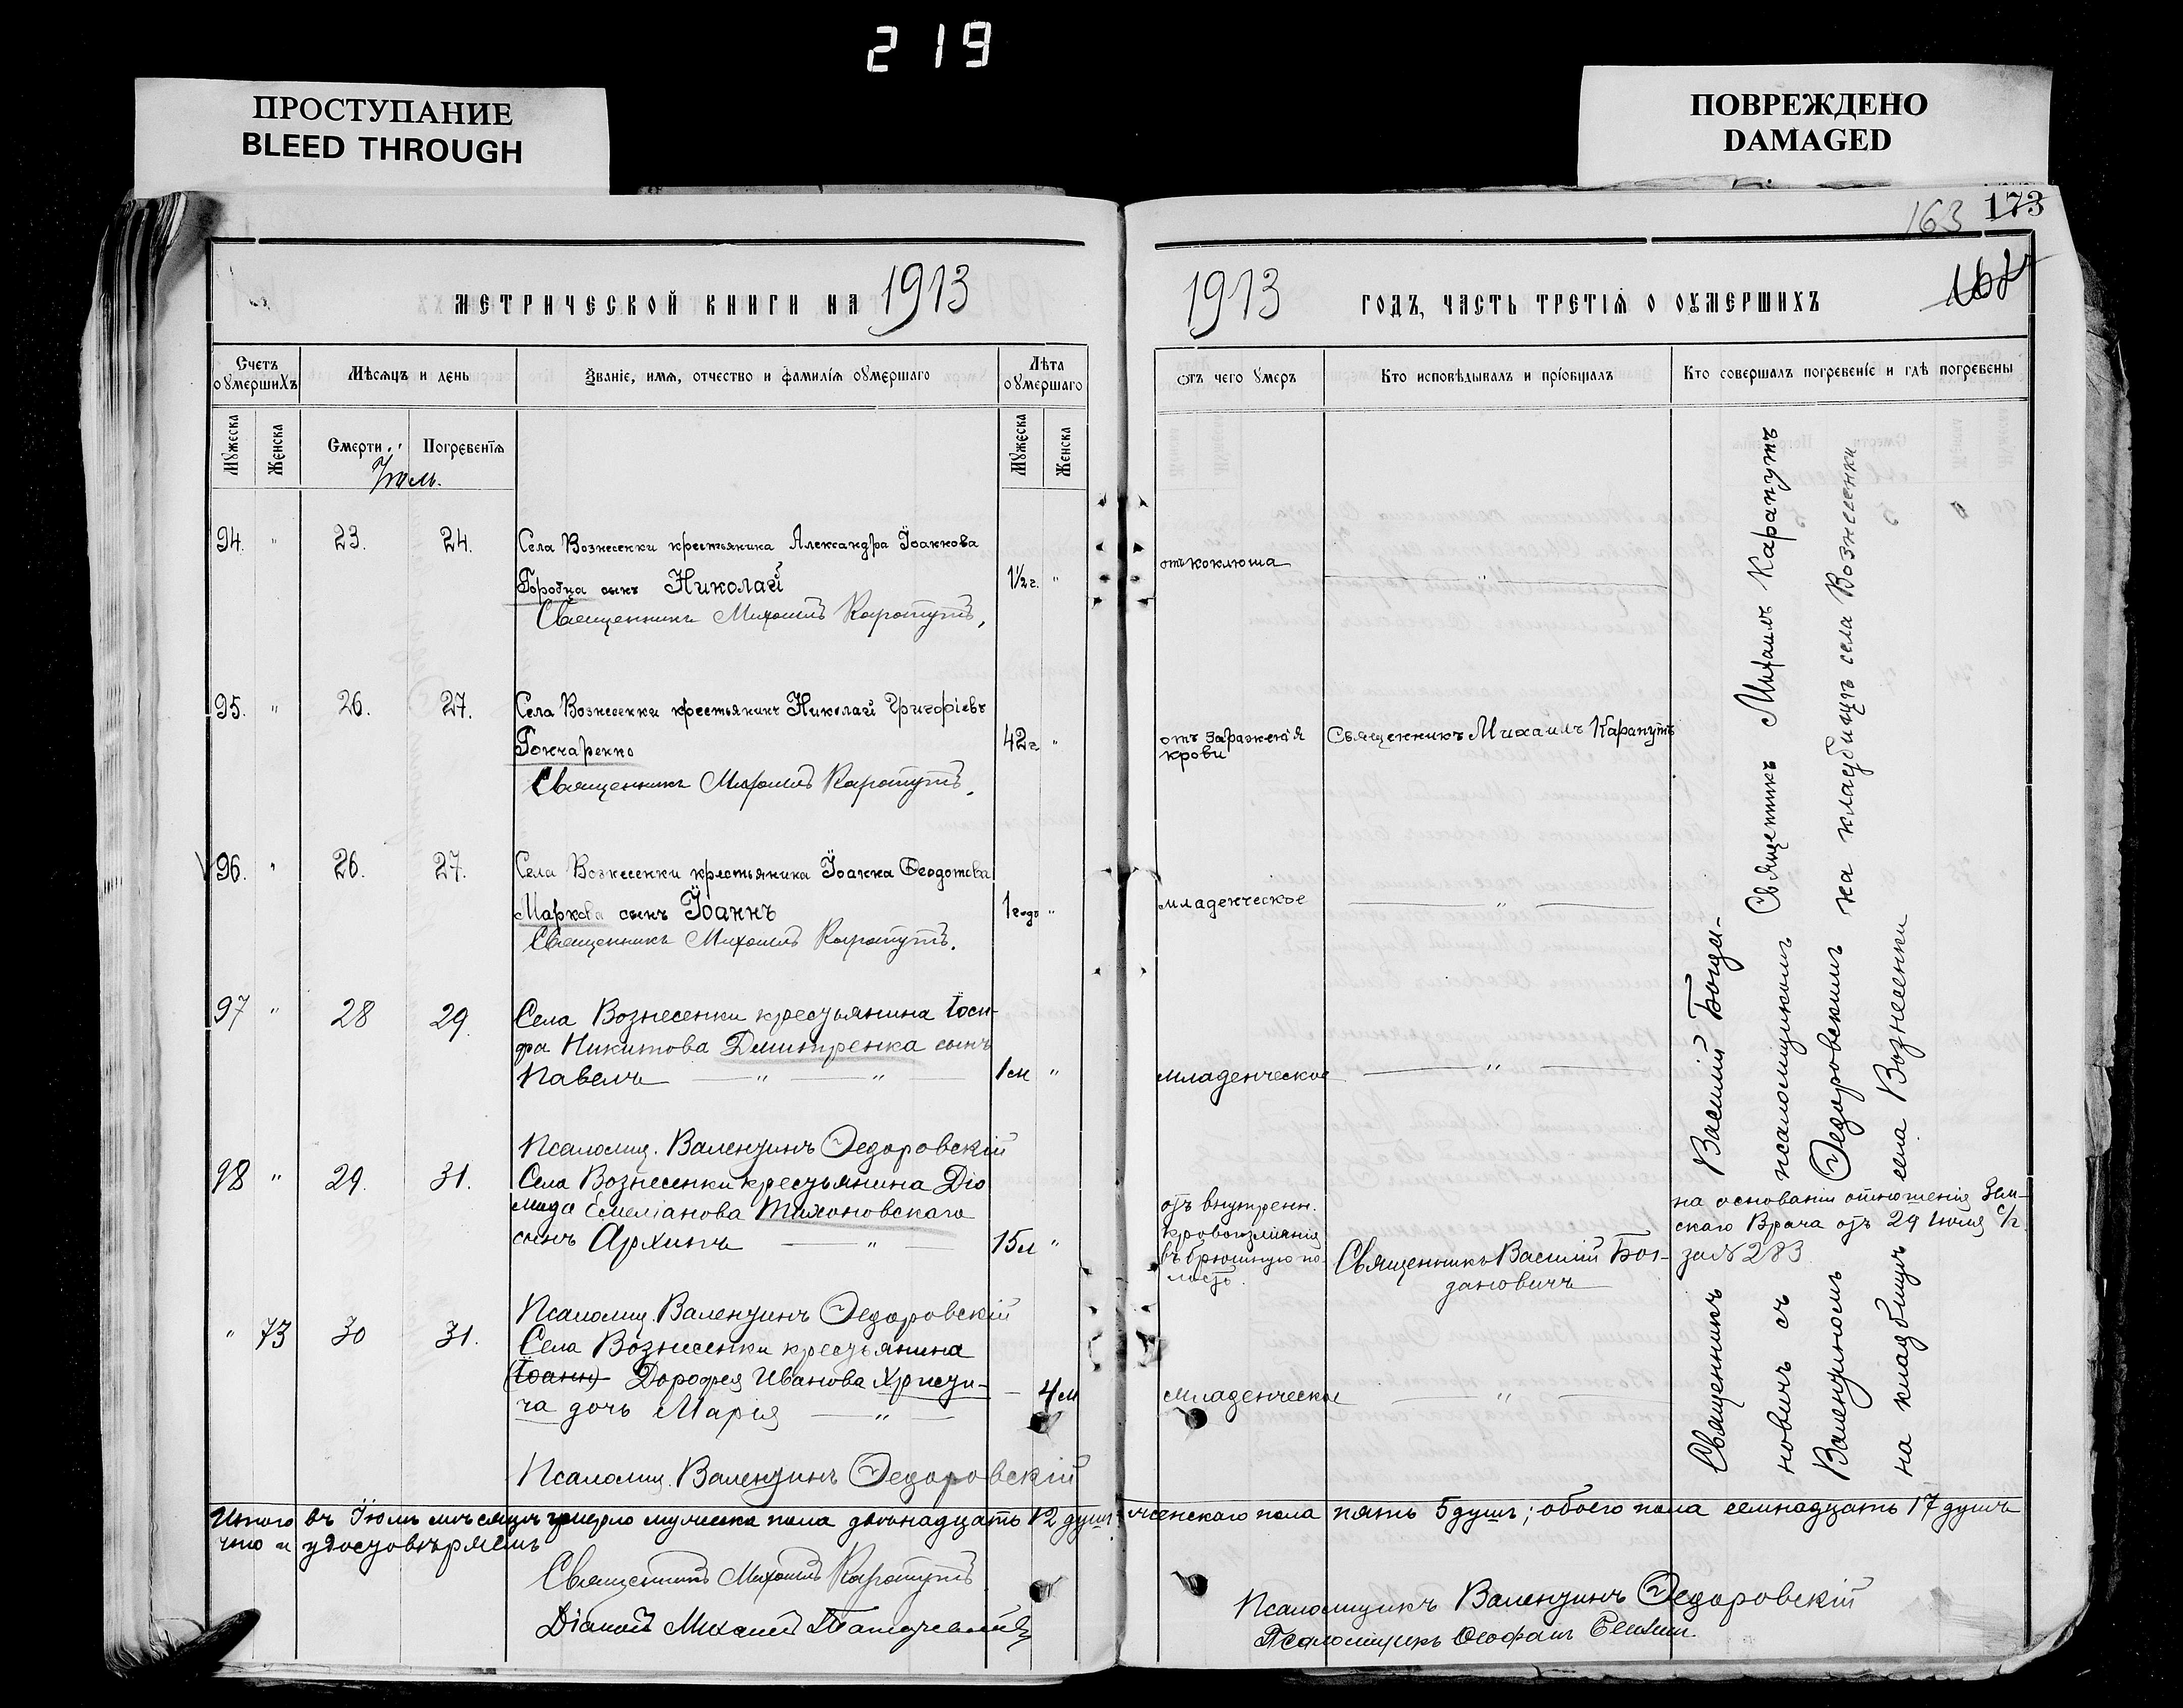 219
ПРОСТУПАНИЕ
BLEED THROUGH
ПОВРЕЖДЕНО
DAMAGED
163 173
МЕТРИЧЕСКОЙ КНИГИ НА 1913
Счетъ оумершихъ
Мѣсяцъ и день
Званіе, имя, отчество и фамилія оумершаго
Лѣта оумершаго
Мужеска
Женска
Смерти
Погребенія
Мужеска
Женска
Іюль.
94. " 23. 24. Села Вознесенки крестьянина Александра Іоаннова
Горобца сынъ Николай 1½ г. "
Священникъ Михаилъ Карапутъ,
95. " 26. 27. Села Вознесенки крестьянинъ Николай Григоріевъ
Гончаренко 42 г. "
Священникъ Михаилъ Карапутъ.
96. " 26. 27. Села Вознесенки крестьянина Іоанна Феодотова
Маркова сынъ Іоаннъ 1 годъ "
Священникъ Михаилъ Карапутъ.
97 " 28 29. Села Вознесенки крестьянина Іоси-
фа Никитова Дмитренка сынъ
Павелъ — " — " 1 м "
Псаломщ. Валентинъ Федоровскій
98 " 29. 31. Села Вознесенки крестьянина Діо
мида Емеліанова Тихоновскаго
сынъ Архипъ — " — 15 л "
Псаломщ. Валентинъ Федоровскій
" 73 30 31. Села Вознесенки крестьянина
(Іоанн) Дорофея Иванова Христи-
ча дочь Марія — " — — 4 м
Псаломщ. Валентинъ Федоровскій
1913 ГОДЪ, ЧАСТЬ ТРЕТІЯ О ОУМЕРШИХЪ
отъ чего умеръ
Кто исповѣдывалъ и пріобщалъ
Кто совершалъ погребеніе и гдѣ погребены
отъ коклюша — " —
отъ зараженія
крови
Священникъ Михаилъ Карапутъ
младенческое — " —
младенческое — " —
отъ внутренн.
кровоизліянія
въ брюшную по-
лость.
Священникъ Василій Бог-
дановичъ
на основаніи отношенія Зем-
скаго Врача отъ 29 Іюля с/г
за № 283
младенческое — " —
Священникъ Василій Богда-
новичъ съ псаломщикомъ Священникъ Михаилъ Карапутъ
Валентиномъ Федоровскимъ на кладбищѣ села Вознесенки
на кладбищѣ села Вознесенки
Итого въ Іюль мѣсяцѣ умерло мужеска пола двѣнадцать 12 душъ; женскаго пола пять 5 душъ; обоего пола семнадцать 17 душъ
что и удостовѣряемъ
Священникъ Михаилъ Карапутъ
Діаконъ Михаилъ
Псаломщикъ Валентинъ Федоровскій
Псаломщикъ Феофанъ